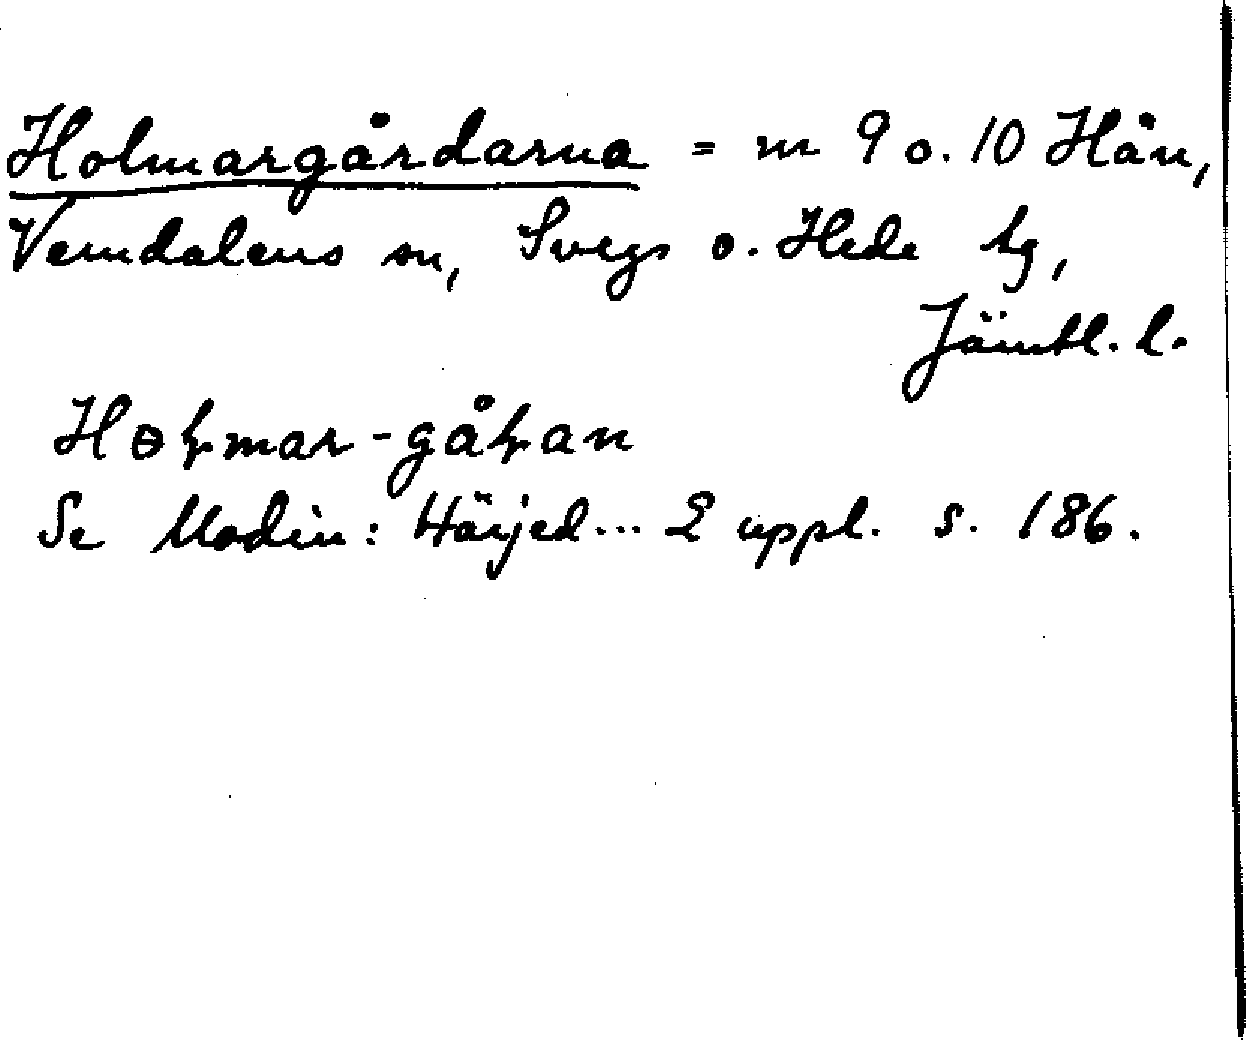 Holmargårdarna = nr 9 o. 10 Hån,
Vemdalens sn, Svegs o. Hede tg,
Jämtl. l.
Hɵƚmar-gåƚan
Se Modin: Härjed... 2 uppl. s. 186.